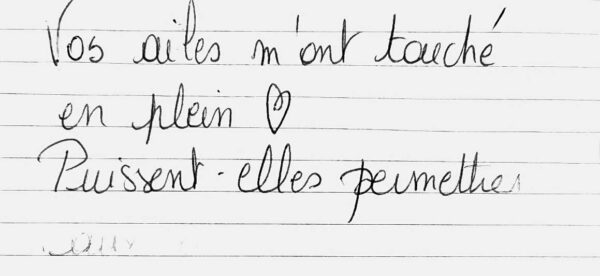 Vos ailes m'ont touché
en plein ♡
Puissent-elles permettre